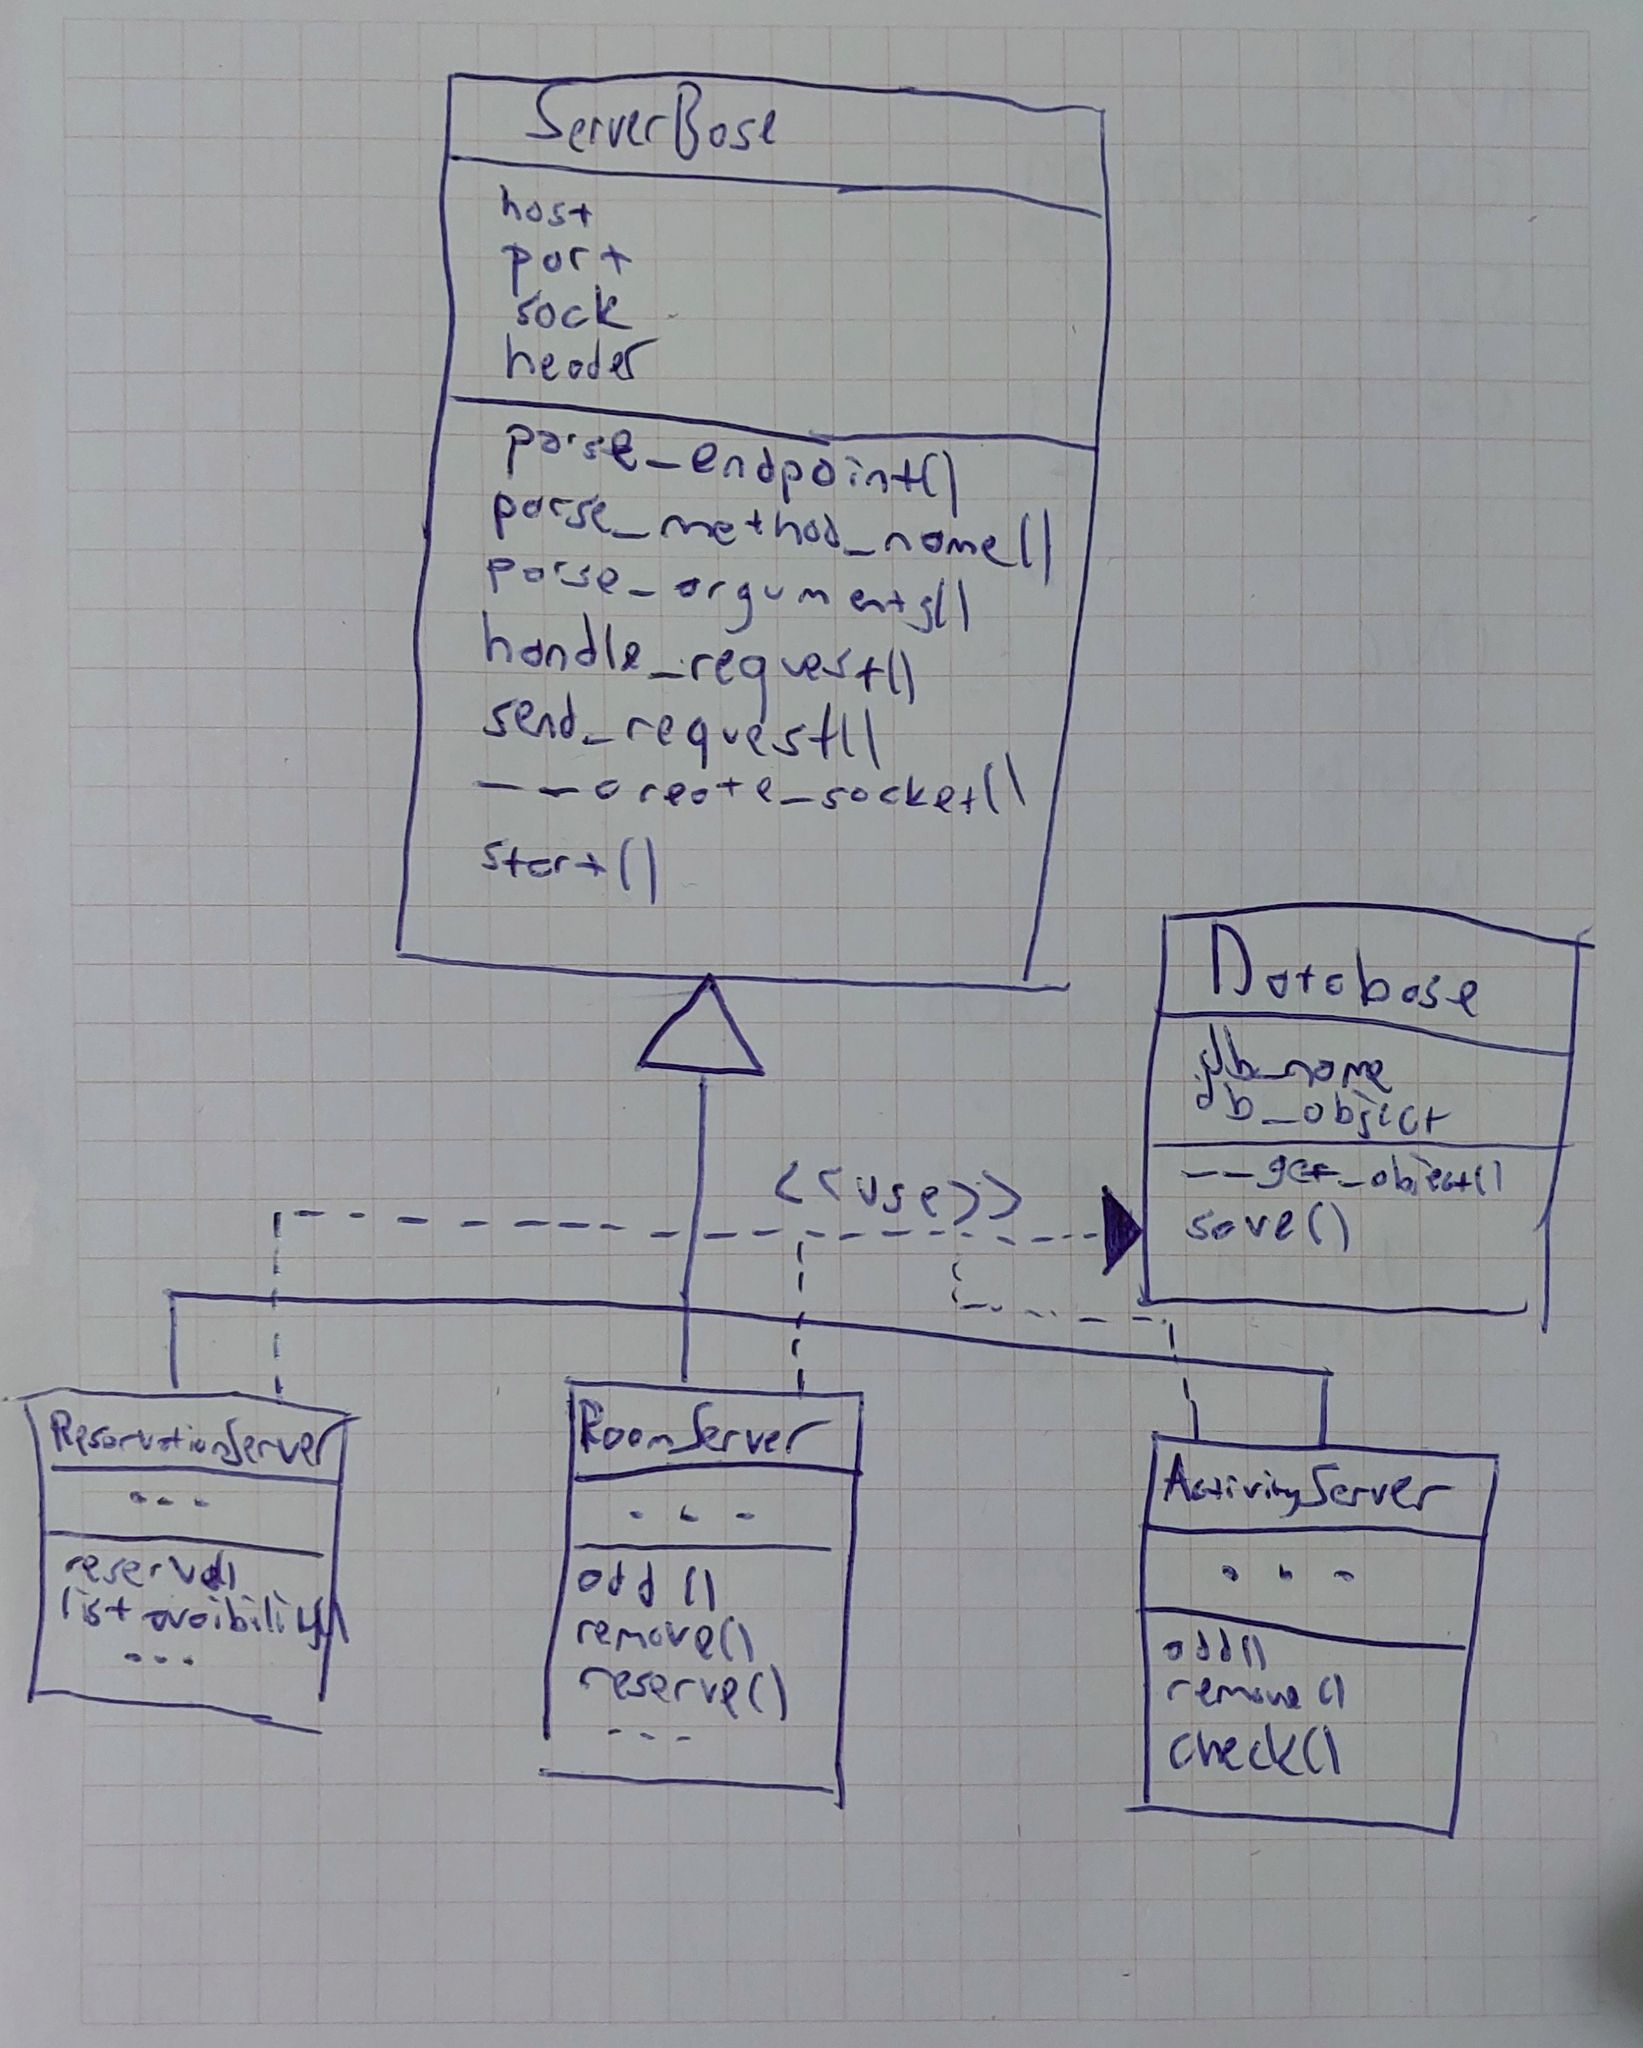 ServerBase
host
port
sock
header
parse_endpoint()
parse_method_name()
parse_arguments()
handle_request()
send_request()
__create_socket()
start()
Database
db_name
db_object
__get_object()
save()
<<use>>
ReservationServer
...
reserve()
list_avaibility()
...
RoomServer
...
add()
remove()
reserve()
...
ActivityServer
...
add()
remove()
check()